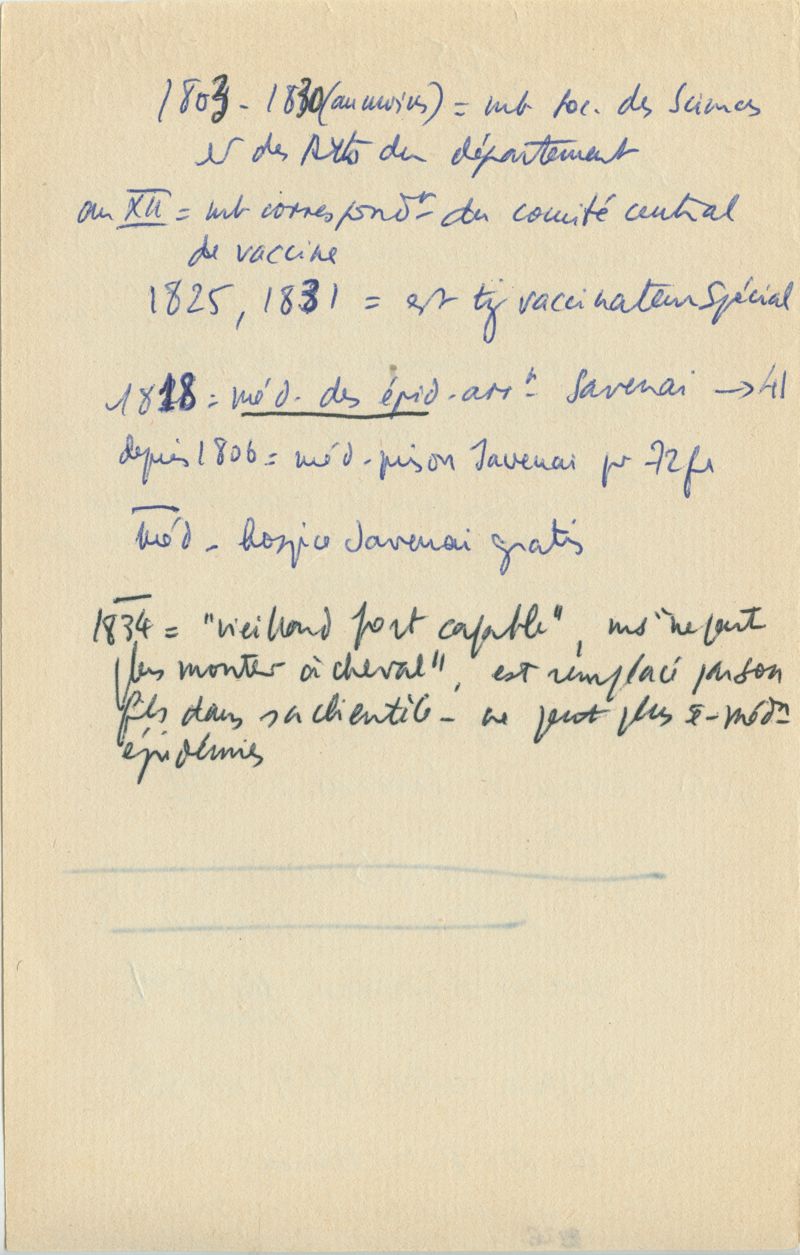 1803 - 1830 (au moins) = mb Soc. des Sciences
et des Arts du département
an XII = mb correspondt du comité central
de vaccine
1825, 1831 = est tj vaccinateur spécial
1818 = méd. des épid. arrt Savenai → 41
depuis 1806 = méd. prison Savenai pr 72 frs
méd - hospice Savenai gratis
1834 = "vieillard fort capable", ms "ne peut
plus monter à cheval", est remplacé par son
fils dans sa clientèle - ne peut plus médn
épidémies